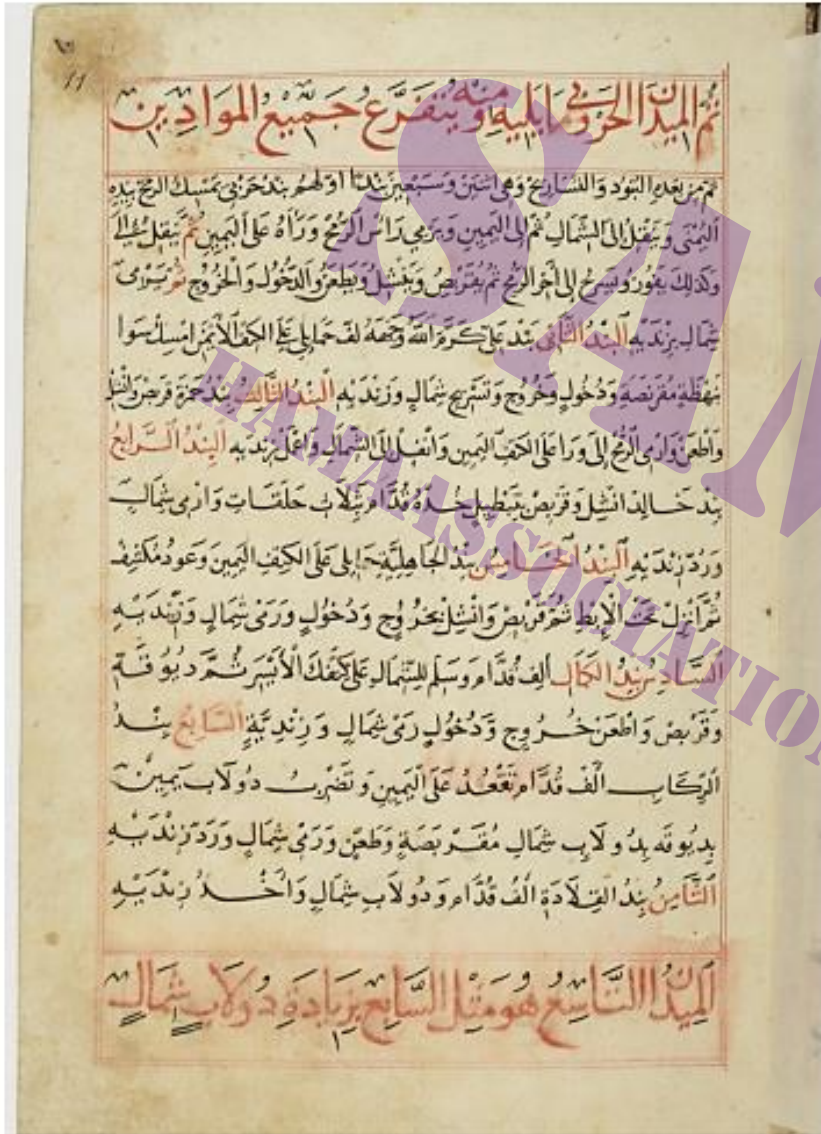 ١١
11
ثم الميدان الحروبي ما يليه ومنه يتفرع جميع الموادين
ثم من بعده البنود والتساريح وهي اثنين وسبعين بندا اولهم بند حربي تمسك الرمح بيده
اليمنى وينقل الى الشمال ثم الى اليمين ويرمي راس الرمح وراه على اليمين ثم ينقل
وكذلك يفور ويسرح الى آخر الرمح ثم يقربص وينشل ويطعن والدخول والخروج ثم يرمى
شمال بزنديه البند الثاني بند علي كرم الله وجهه لف حمايلي على الكتف الأيمن امسك سوا
نهظة مقربصة ودخول وخروج وتسريح شمال وزنديه البند الثالث بند حمزة قربص وانشل
واطعن وارمى الرمح إلى ورا على الكتف اليمين وانفل إلى الشمال واعمل زنديه البند الرابع
بند خالد انشل وقربص بتبطيل خده قدام بثلاث حلقات وارمى شمال
ورد زنديه البند الخامس بند الجاهلية حمايلى على الكتف اليمين وعود مكتف
ثم أنزل تحت الإبط ثم قربص وانشل بخروج ودخول ورمى شمال وزنديه
السادس بند الكمال ألف قدام وسلم للشمال على كتفك الأيسر ثم دبوقة
وقربص واطعن خروج ودخول رمى شمال وزندية السابع بند
الركاب الف قدام تقعد على اليمين وتضرب دولاب يمين
بدبوقه بدولاب شمال مقربصة وطعن ورمى شمال ورد زنديه
الثامن بند القلادة الف قدام ودولاب شمال وأخد زنديه
الميدان التاسع هو مثل السابع بزيادة دولاب شمال
SAN
HAMAASSOCIATION